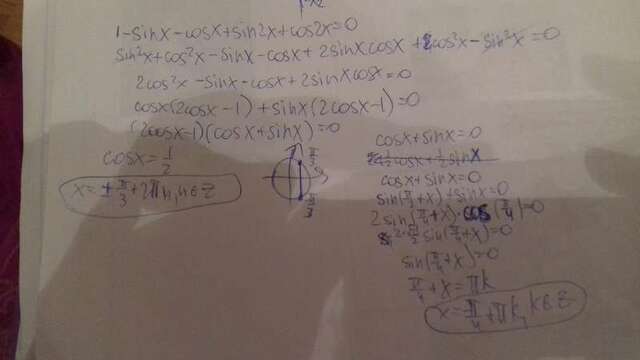 1-sinx-cosx+sin2x+cos2x=0
sin²x+cos²x-sinx-cosx+2sinxcosx+cos²x-sin²x=0
2cos²x-sinx-cosx+2sinxcosx=0
cosx(2cosx-1)+sinx(2cosx-1)=0
(2cosx-1)(cosx+sinx)=0
cosx=1/2
x=±π/3+2πn, n∈Z
π/3
π/3
cosx+sinx=0
cosx+sinx=0
sin(π/2+x)+sinx=0
2sin(π/4+x)·cos(π/4)=0
sin(π/4+x)=0
π/4+x=πk
x=-π/4+πk, k∈Z